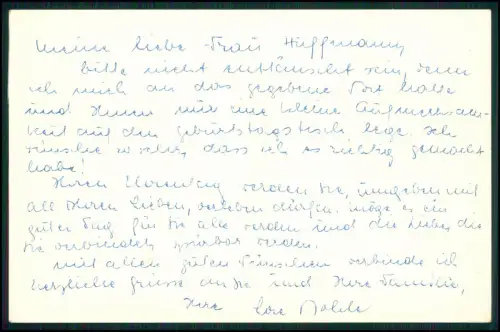 Meine liebe Frau Hüffmann,
bitte nicht enttäuscht sein, wenn
ich mich an das gegebene Wort halte
und Ihnen nur eine kleine Aufmerksam-
keit auf den Geburtstagstisch lege. Ich
wünsche so sehr, dass ich es richtig gemacht
habe!
Ihren Ehrentag werden Sie, umgeben mit
all Ihren Lieben, verleben dürfen. Möge es ein
guter Tag für Sie alle werden und die Liebe die
Sie verbindet spürbar werden.
Mit allen guten Wünschen verbinde ich
herzliche Grüsse an Sie und Ihre Familie,
Ihre Lore